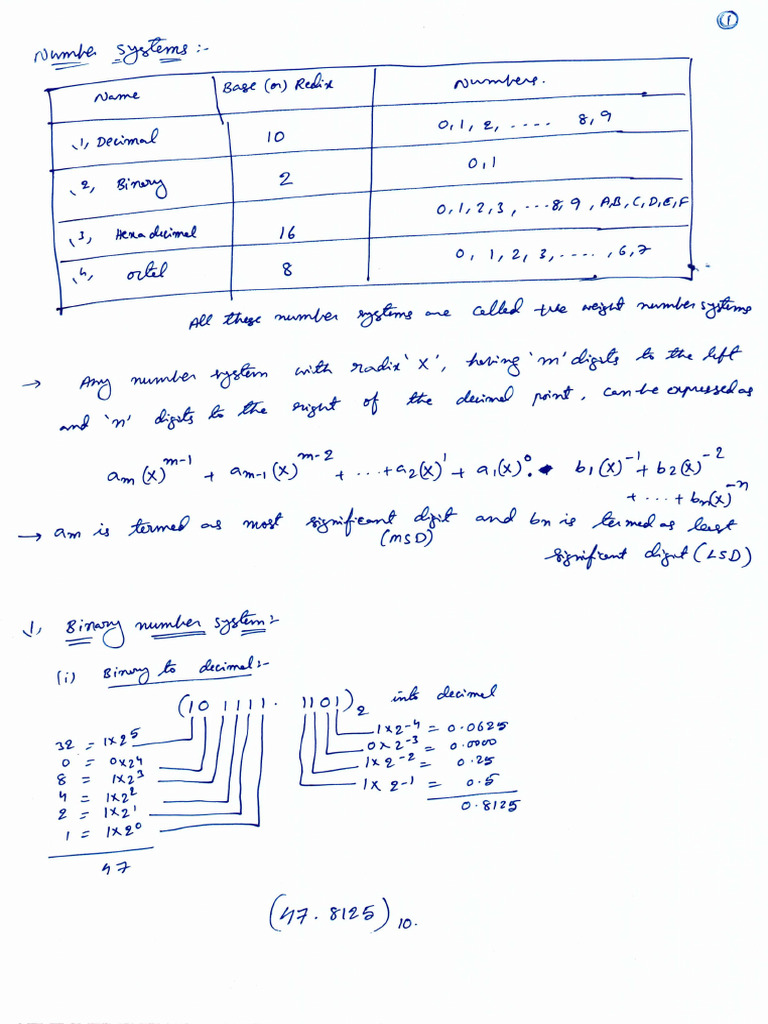 1
Number systems :-
Name Base (or) Redix Numbers.
1, Decimal 10 0, 1, 2, .... 8, 9
2, Binary 2 0, 1
3, Hexadecimal 16 0, 1, 2, 3, ...8, 9, A, B, C, D, E, F
4, octel 8 0, 1, 2, 3, ....., 6, 7
All these number systems are called +ve weight number systems
→ Any number system with radix 'X', having 'm' digits to the left
and 'n' digits to the right of the decimal point, can be expressed as
am(x)^m-1 + am-1(x)^m-2 + ... + a2(x)^1 + a1(x)^0 . b1(x)^-1 + b2(x)^-2
+ ... + bn(x)^-n
→ am is termed as most significant digit and bn is termed as least
(MSD) significant digit (LSD)
1, Binary number system :-
(i) Binary to decimal :-
(101111. 1101)2 into decimal
32 = 1x2^5
0 = 0x2^4
8 = 1x2^3
4 = 1x2^2
2 = 1x2^1
1 = 1x2^0
47
1x2^-4 = 0.0625
0x2^-3 = 0.0000
1x2^-2 = 0.25
1x2^-1 = 0.5
0.8125
(47.8125)10.